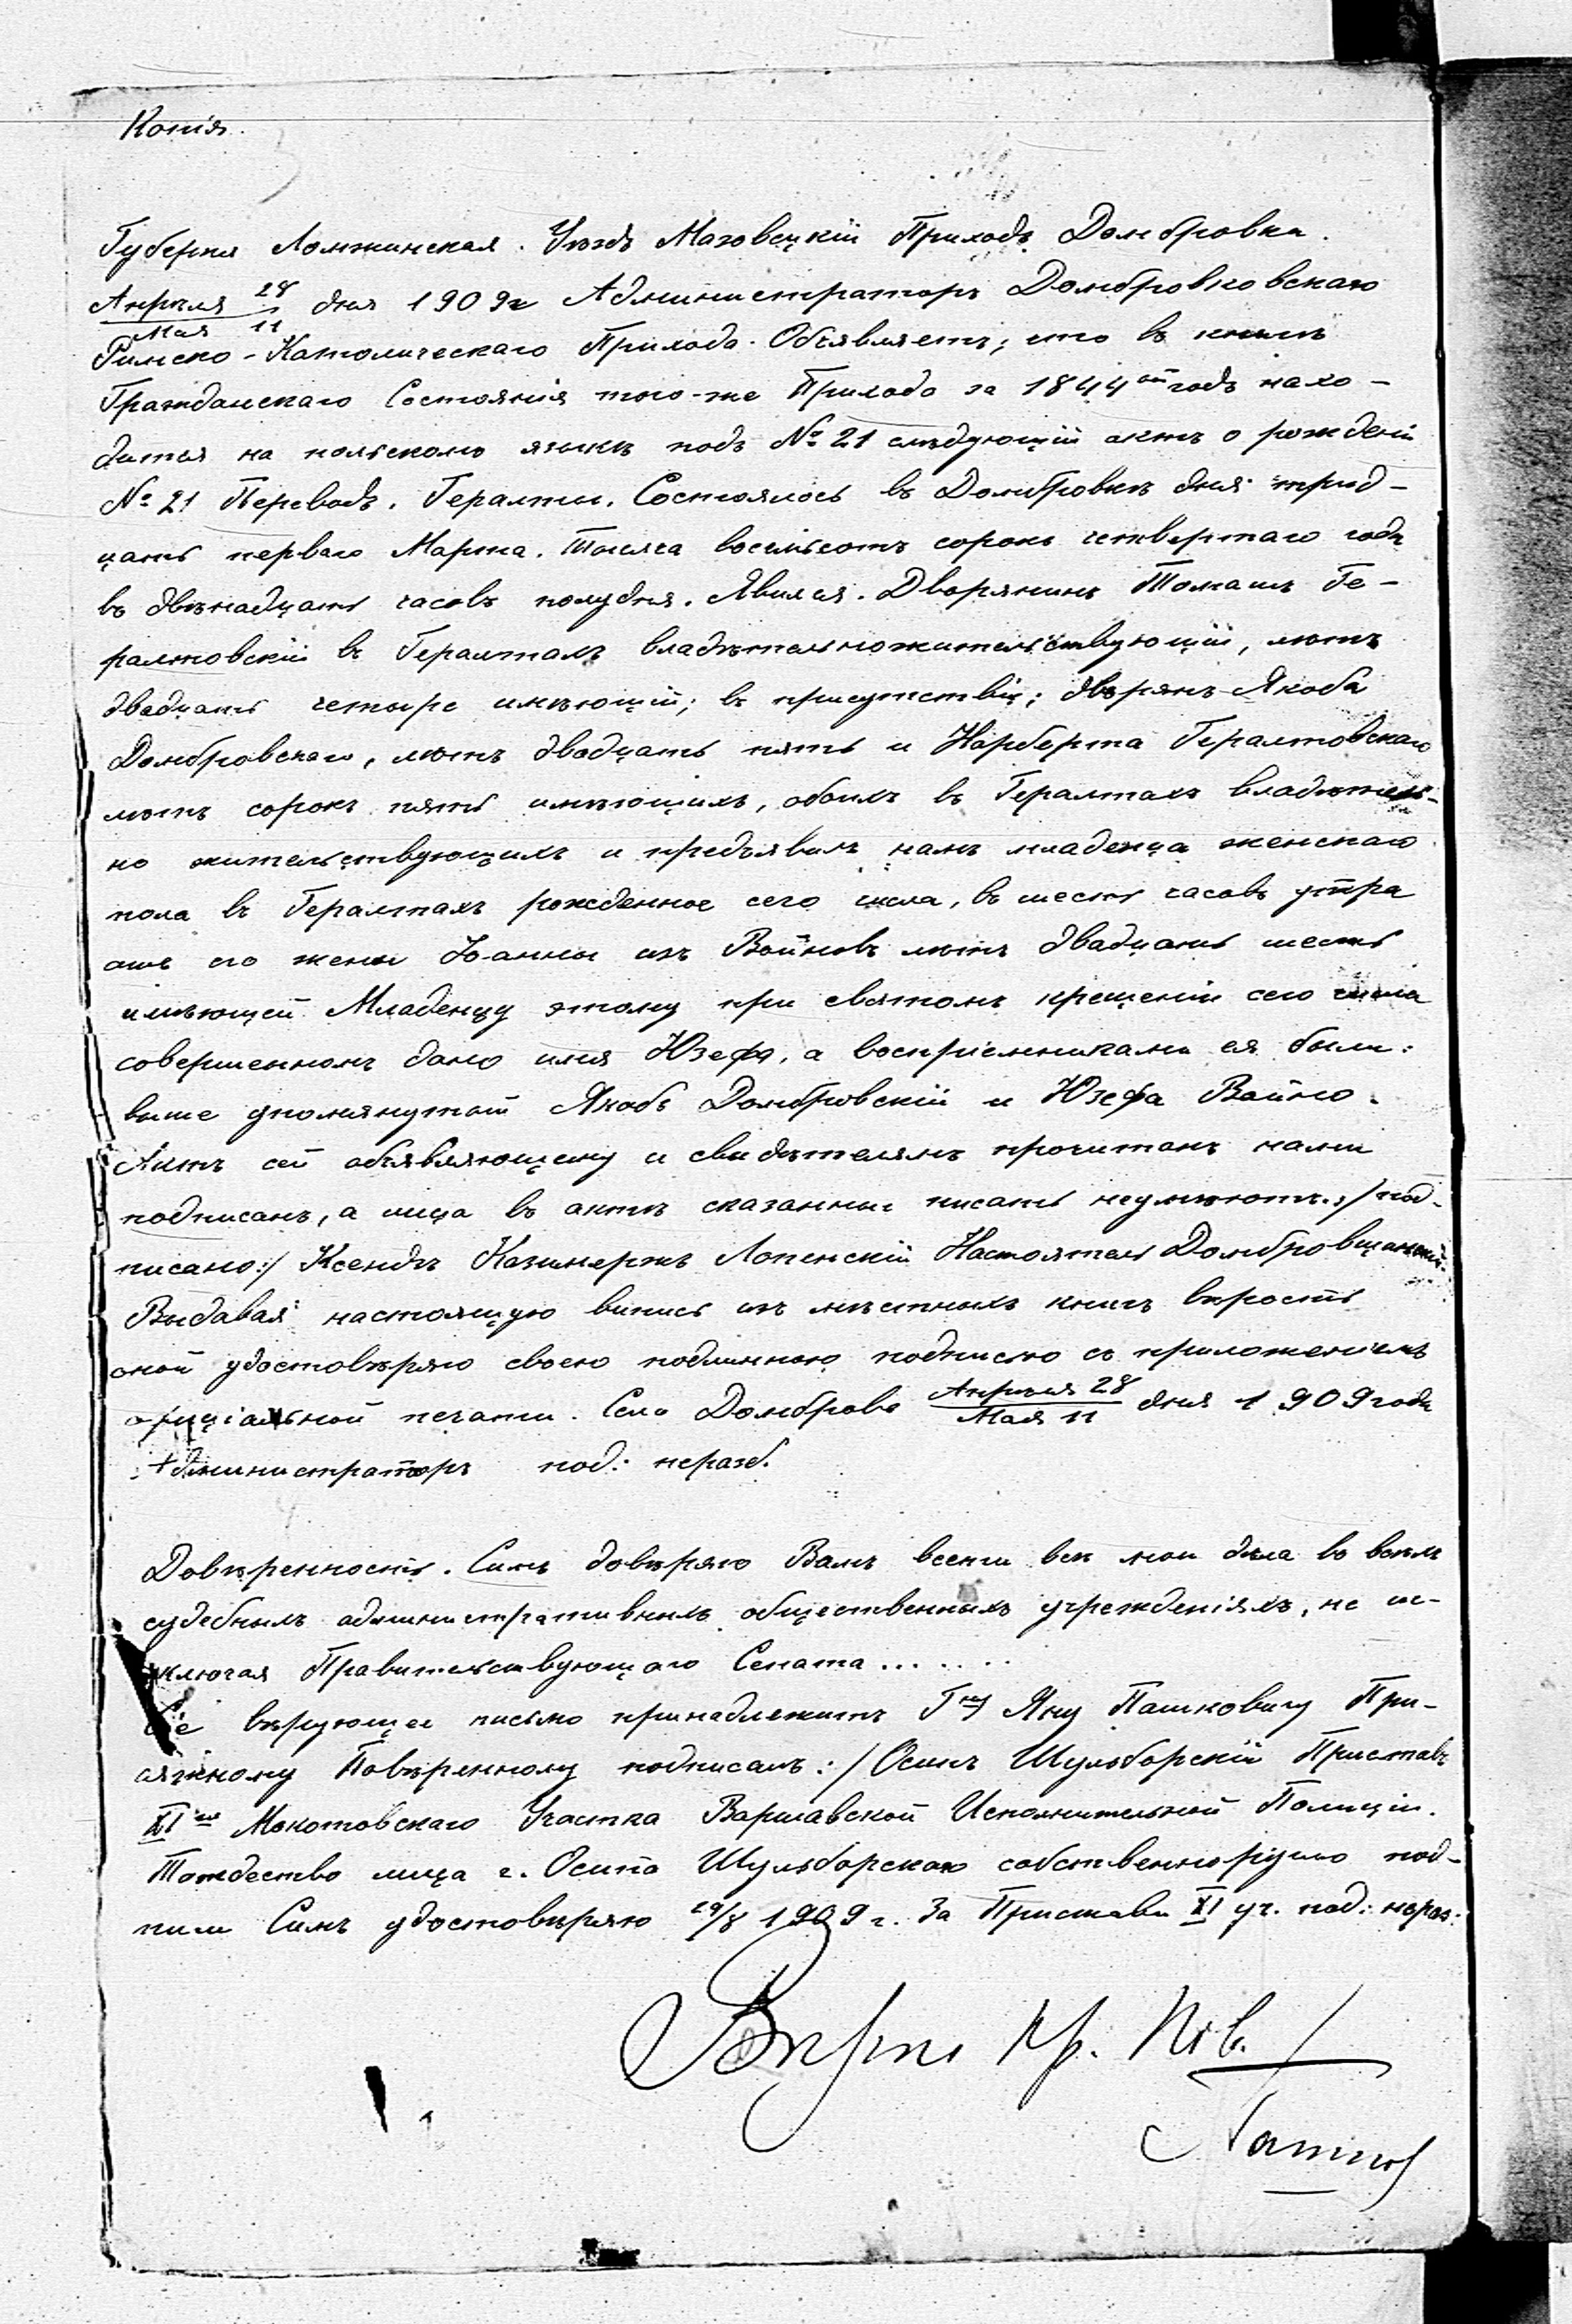 Копія.
Губернія Ломжинская. Уѣздъ Мазовецкій Приходъ Домбровка.
Апрѣля 28 / Мая 11 дня 1909 г Администраторъ Домбровковскаго
Римско-Католическаго Прихода. Объявляетъ, что въ книгѣ
Гражданскаго Состоянія того-же Прихода за 1844ый годъ нахо-
дится на польскомъ языкѣ подъ № 21 слѣдующій актъ о рожденіи
№ 21 Переводъ. Гералты. Состоялось въ Домбровкѣ дня трид-
цать перваго Марта. Тысяча восемьсотъ сорокъ четвертаго года
въ двѣнадцать часовъ полудня. Явился. Дворянинъ Томашъ Ге-
ралтовскій въ Гералтахъ владѣтельножительствующій, лѣтъ
двадцать четыре имѣющій; въ присутствіи; дворянъ Якоба
Домбровскаго, лѣтъ двадцать пять и Норберта Гералтовскаго
лѣтъ сорокъ пять имѣющихъ, обоихъ въ Гералтахъ владѣтель-
но жительствующихъ и предъявилъ намъ младенца женскаго
пола въ Гералтахъ рожденное сего числа, въ шесть часовъ утра
отъ его жены Іоанны изъ Войновъ лѣтъ двадцать шесть
имѣющей Младенцу этому при святомъ крещеніи сего числа
совершенномъ дано имя Юзефа, а воспріемниками ея были:
выше упомянутый Якобъ Домбровскій и Юзефа Война.
Актъ сей объявляющему и свидѣтелямъ прочитанъ нами
подписанъ, а лица въ актѣ сказанные писать неумѣютъ. :/ под-
писано:/ Ксендзъ Казимержъ Лопенскій Настоятель
Выдавая настоящую выпись изъ мѣстныхъ книгъ вѣрность
оной удостовѣряю своею подлинною подписью съ приложеніемъ
офиціальной печати. Село Домброва Апрѣля 28 / Мая 11 дня 1909 года
Администраторъ под: неразб.
Довѣренность. Симъ довѣряю Вамъ вести всѣ мои дѣла во всѣхъ
судебныхъ административныхъ общественныхъ учрежденіяхъ, не ис-
ключая Правительствующаго Сената . . . . . . .
Сіе вѣрующее письмо принадлежитъ Гну Яну Пашковичу При-
сяжному Повѣренному подписалъ :/ Осипъ Шульборскій Приставъ
XI го Мокотовскаго Участка Варшавской Исполнительной Полиціи.
Тождество лица г. Осипа Шульборскаго собственноручно под-
писи Симъ удостовѣряю 29/8 1909 г. За Пристава XI уч. под: нераз:
Вѣрно Пр. Пов.